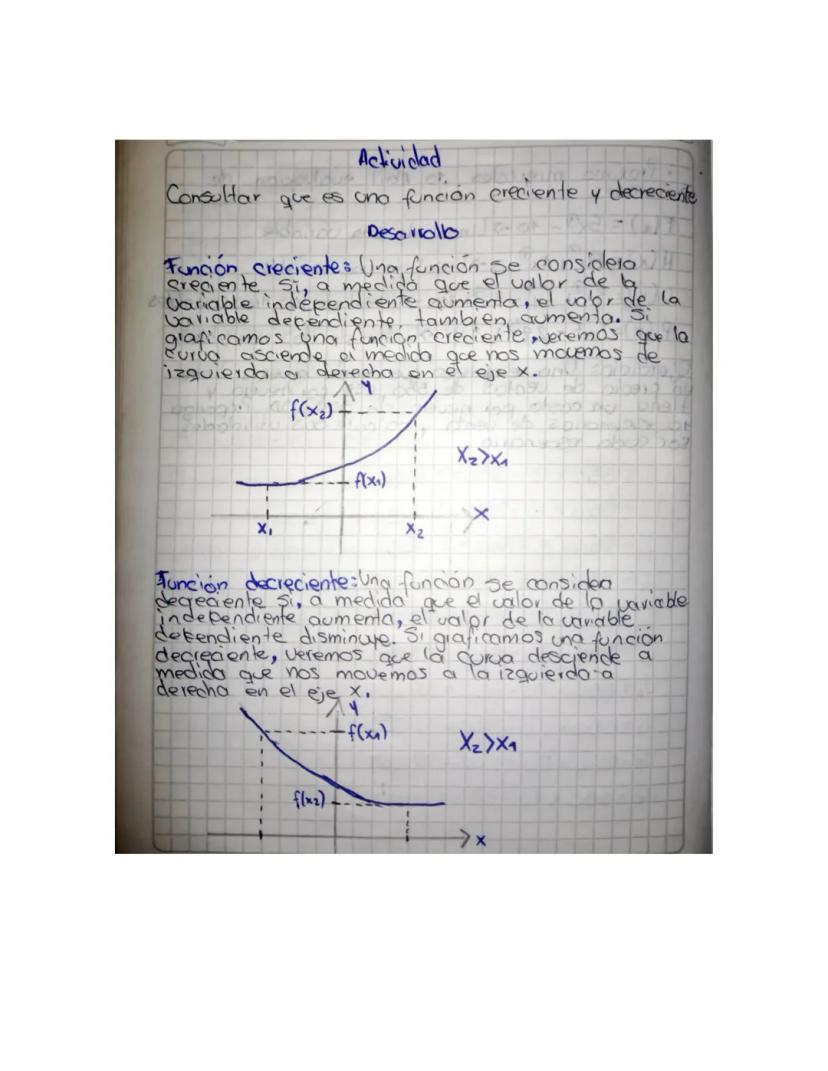 Actividad
Consultar que es una función creciente y decreciente
Desarrollo
Función creciente: Una función se considera
creciente si, a medida que el valor de la
variable independiente aumenta, el valor de la
variable dependiente, tambien aumenta. Si
graficamos una función creciente, veremos que la
curva asciende a medida que nos movemos de
izquierda a derecha en el eje x.
y
f(x₂)
X₂>X₁
f(x₁)
x
X₁ X₂
Función decreciente: Una función se considera
decreciente si, a medida que el valor de la variable
independiente aumenta, el valor de la variable
dependiente disminuye. Si graficamos una función
decreciente, veremos que la curva desciende a
medida que nos movemos a la izquierda a
derecha en el eje x.
y
f(x₁)
X₂>X₁
f(x₂)
x